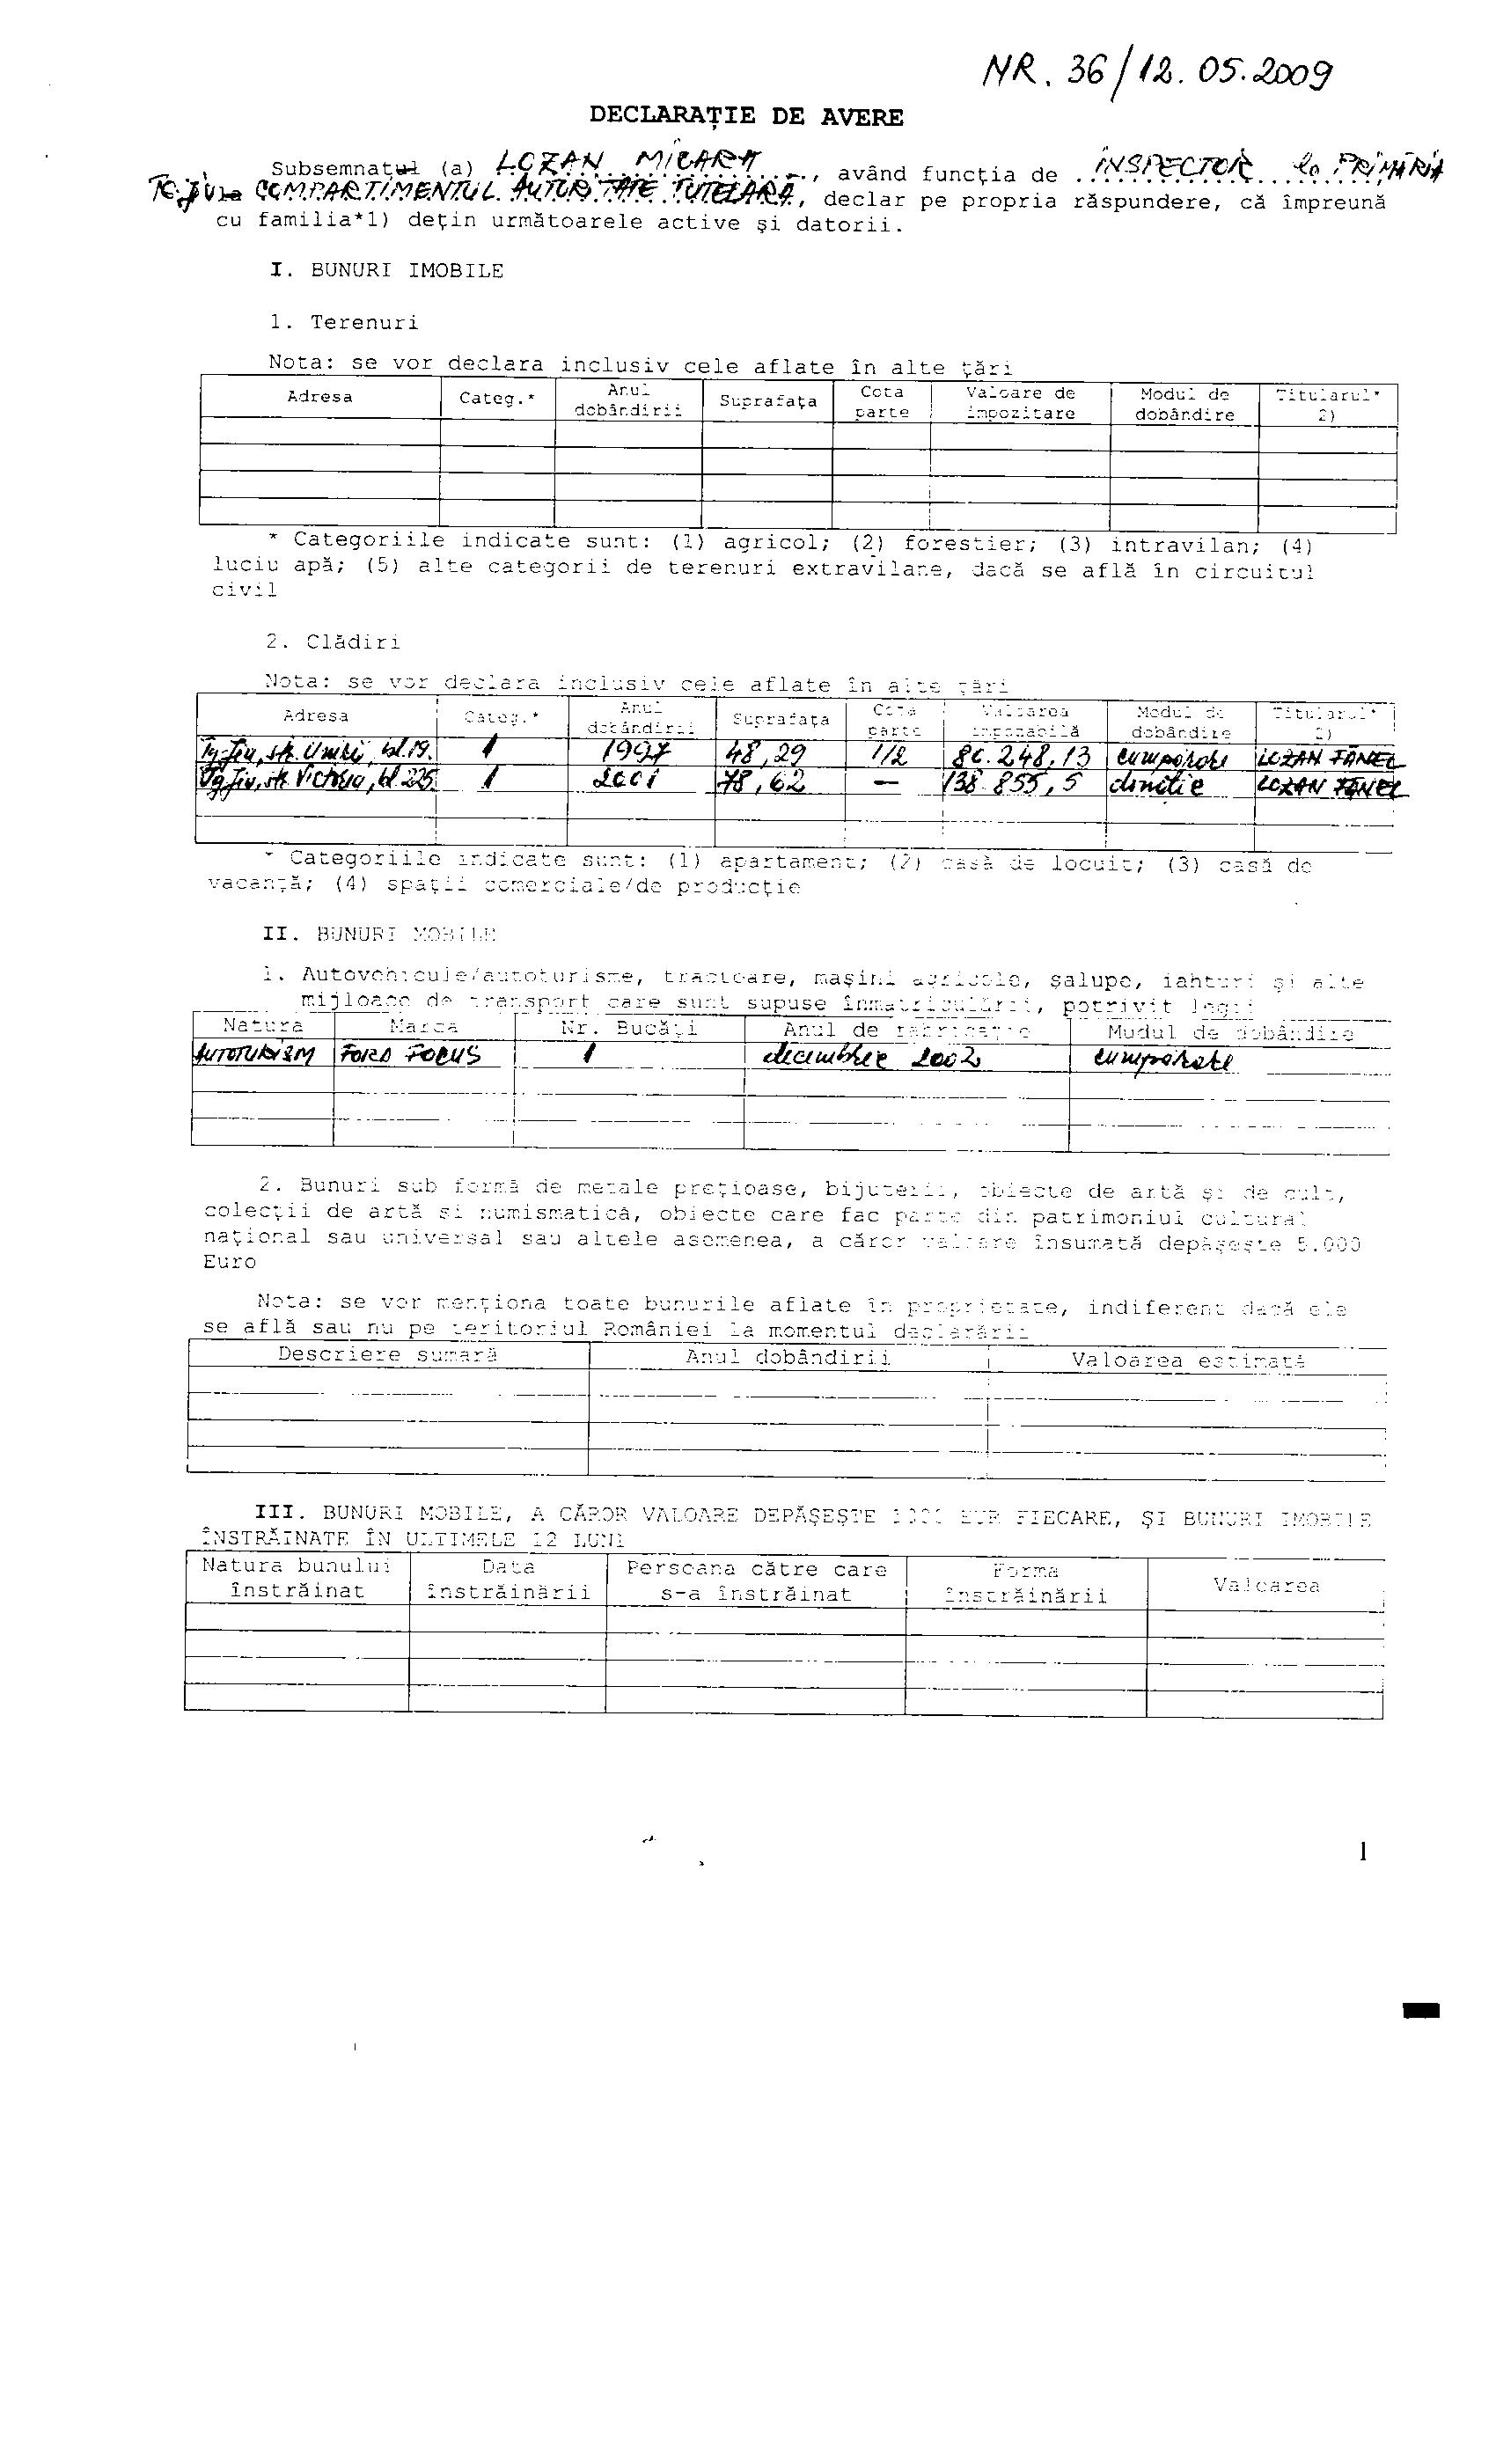 NR. 36/12.05.2009
DECLARAŢIE DE AVERE
Subsemnatul (a) LOZAN MICARA, având funcţia de INSPECTOR la PRIMĂRIA
TG-JIU la COMPARTIMENTUL AUTORITATE TUTELARĂ, declar pe propria răspundere, că împreună
cu familia*1) deţin următoarele active şi datorii.
I. BUNURI IMOBILE
1. Terenuri
Nota: se vor declara inclusiv cele aflate în alte ţări
Adresa Categ.* Anul dobândirii Suprafaţa Cota parte Valoare de impozitare Modul de dobândire Titularul* 2)
* Categoriile indicate sunt: (1) agricol; (2) forestier; (3) intravilan; (4)
luciu apă; (5) alte categorii de terenuri extravilane, dacă se află în circuitul
civil
2. Clădiri
Nota: se vor declara inclusiv cele aflate în alte ţări
Adresa Categ.* Anul dobândirii Suprafaţa Cota parte Valoarea impozabilă Modul de dobândire Titularul* 2)
Tg-Jiu, str. Unirii, bl.19. 1 1997 48,29 1/2 80.248,13 cumpărare LOZAN FĂNEL
Tg Jiu, str. Victoria, bl 225 1 2001 78,62 — 138 855,5 donație LOZAN FĂNEL
* Categoriile indicate sunt: (1) apartament; (2) casă de locuit; (3) casă de
vacanţă; (4) spaţii comerciale/de producţie
II. BUNURI MOBILE
1. Autovehicule/autoturisme, tractoare, maşini agricole, şalupe, iahturi şi alte
mijloace de transport care sunt supuse înmatriculării, potrivit legii
Natura Marca Nr. Bucăţi Anul de fabricaţie Mudul de dobândire
AUTOTURISM FORD FOCUS 1 decembrie 2002 cumpărare
2. Bunuri sub formă de metale preţioase, bijuterii, obiecte de artă şi de cult,
colecţii de artă si numismatică, obiecte care fac parte din patrimoniul cultural
naţional sau universal sau altele asemenea, a căror valoare însumată depăşeşte 5.000
Euro
Nota: se vor menţiona toate bunurile aflate în proprietate, indiferent dacă ele
se află sau nu pe teritoriul României la momentul declarării
Descriere sumară Anul dobândirii Valoarea estimată
III. BUNURI MOBILE, A CĂROR VALOARE DEPĂŞEŞTE 1000 EUR FIECARE, ŞI BUNURI IMOBILE
ÎNSTRĂINATE ÎN ULTIMELE 12 LUNI
Natura bunului înstrăinat Data înstrăinării Persoana către care s-a înstrăinat Forma înstrăinării Valoarea
1